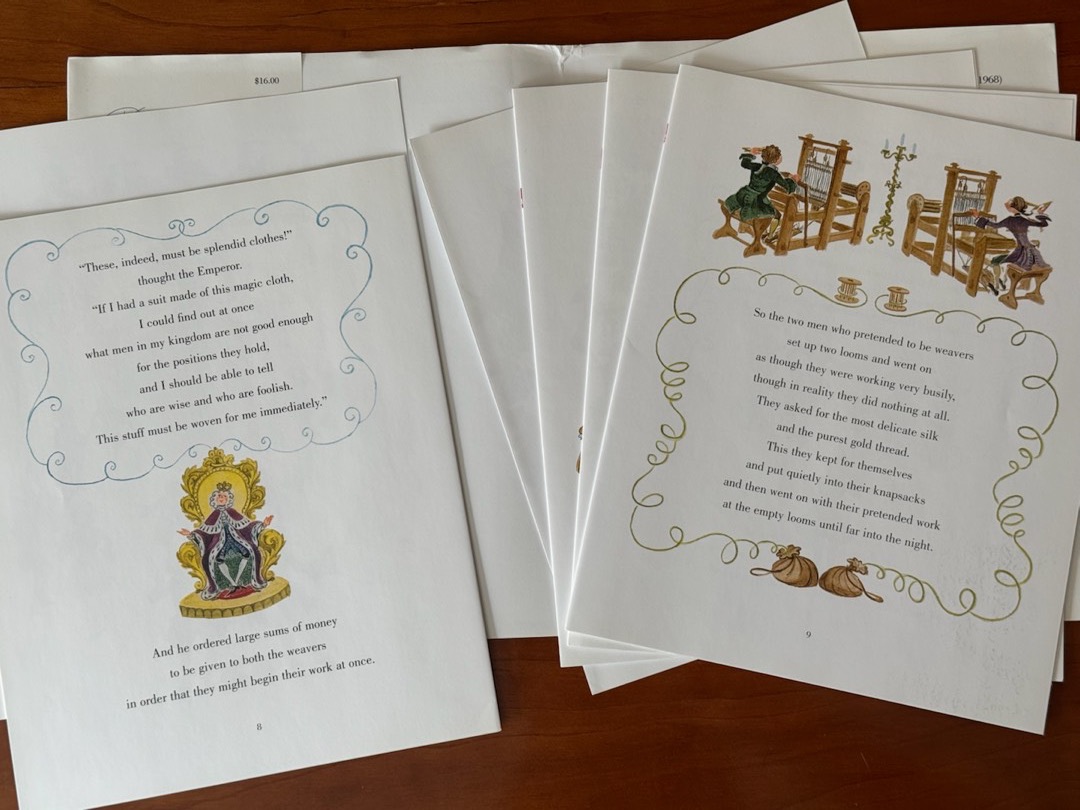 $16.00
1968)
“These, indeed, must be splendid clothes!”
thought the Emperor.
“If I had a suit made of this magic cloth,
I could find out at once
what men in my kingdom are not good enough
for the positions they hold,
and I should be able to tell
who are wise and who are foolish.
This stuff must be woven for me immediately.”
And he ordered large sums of money
to be given to both the weavers
in order that they might begin their work at once.
8
So the two men who pretended to be weavers
set up two looms and went on
as though they were working very busily,
though in reality they did nothing at all.
They asked for the most delicate silk
and the purest gold thread.
This they kept for themselves
and put quietly into their knapsacks
and then went on with their pretended work
at the empty looms until far into the night.
9